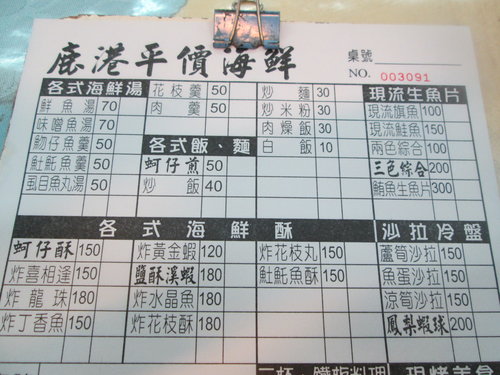 鹿港平價海鮮
桌號
NO. 003091
各式海鮮湯 花枝羹 50 炒麵 30 現流生魚片
鮮魚湯 70 肉羹 50 炒米粉 30 現流旗魚 100
味噌魚湯 70 肉燥飯 30 現流鮭魚 150
魩仔魚羹 50 各式飯、麵 白飯 10 兩色綜合 200
𩵚魠魚羹 50 蚵仔煎 50 三色綜合 200
虱目魚丸湯 50 炒飯 40 鮪魚生魚片 300
各式海鮮酥 沙拉冷盤
蚵仔酥 150 炸黃金蝦 120 炸花枝丸 150 蘆筍沙拉 150
炸喜相逢 150 鹽酥溪蝦 180 𩵚魠魚酥 150 魚蛋沙拉 150
炸龍珠 180 炸水晶魚 180 涼筍沙拉 150
炸丁香魚 150 炸花枝酥 180 鳳梨蝦球 200
三杯、鐵板料理 現烤美食